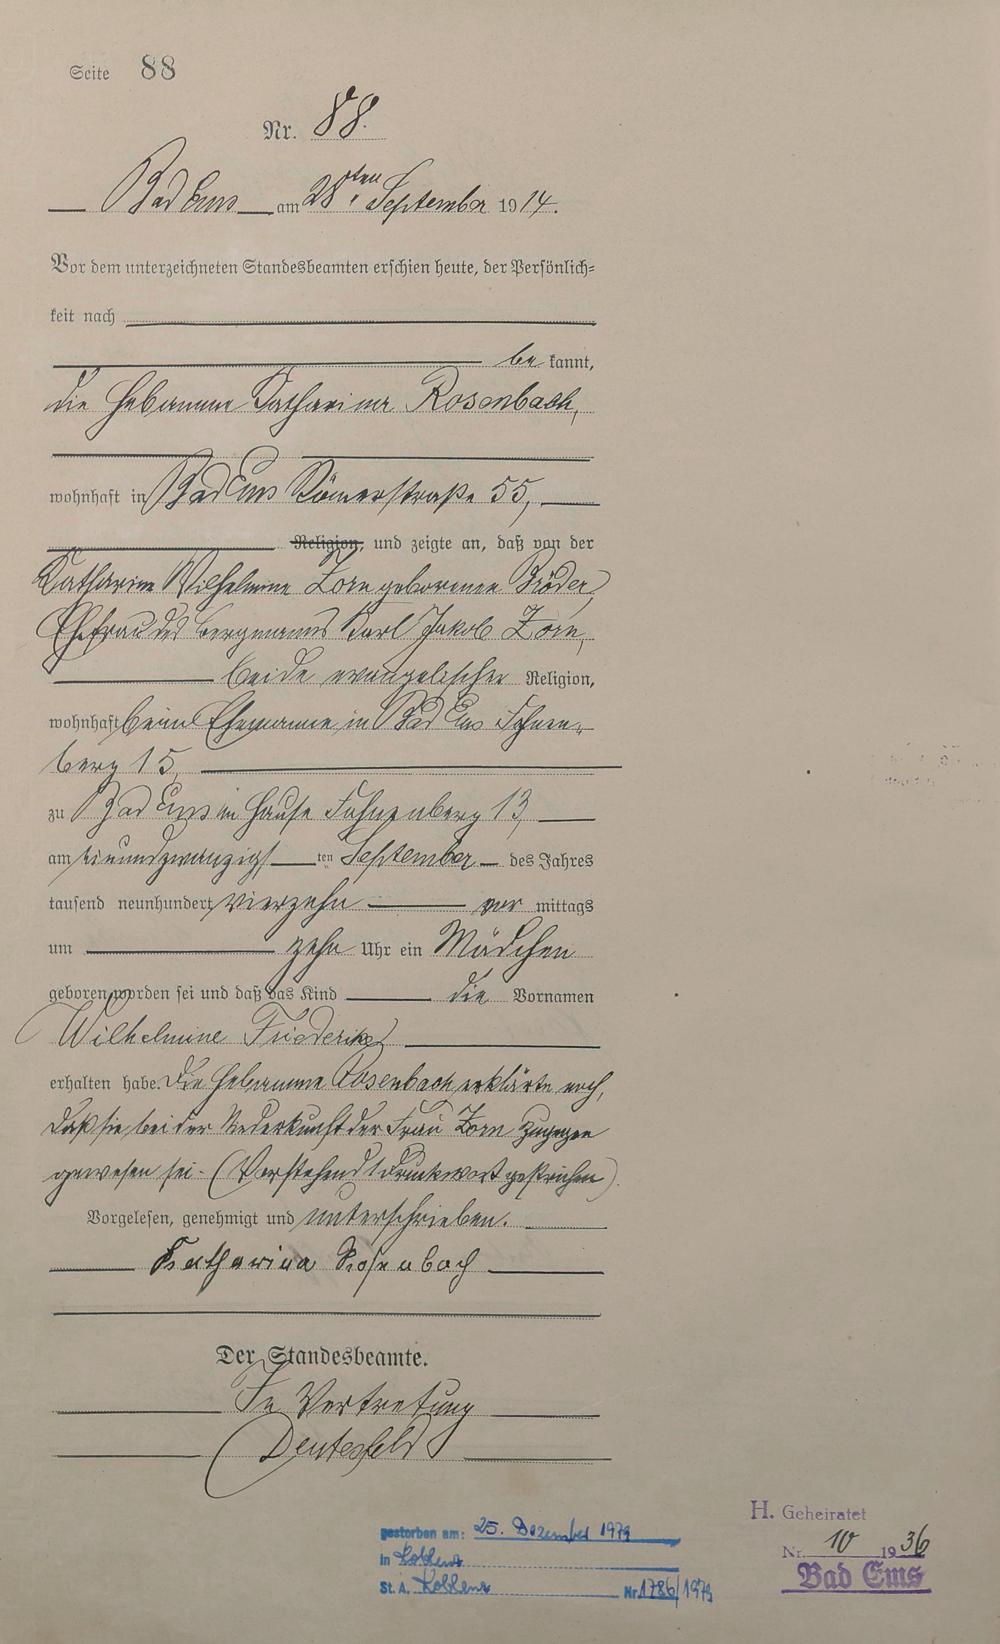 Seite 88
Nr. 88.
Bad Ems am 28ten September 1914.
Vor dem unterzeichneten Standesbeamten erschien heute, der Persönlich=
keit nach
be kannt,
die Hebamme Katharina Rosenbach,
wohnhaft in Bad Ems Römerstraße 55,
Religion, und zeigte an, daß von der
Katharine Wilhelmine Zorn geborenen Bröder,
Ehefrau des Bergmanns Karl Jakob Zorn,
beide evangelischer Religion,
wohnhaft beim Ehemanne in Bad Ems Fahnen=
berg 15,
zu Bad Ems im Hause Fahnenberg 13,
am einundzwanzigsten September des Jahres
tausend neunhundert vierzehn vor mittags
um zehn Uhr ein Mädchen
geboren worden sei und daß das Kind die Vornamen
Wilhelmine Friederike
erhalten habe. Die Hebamme Rosenbach erklärte noch,
daß sie bei der Niederkunft der Frau Zorn zugegen
gewesen sei. (Vorstehend 1 Druckwort gestrichen).
Vorgelesen, genehmigt und unterschrieben.
Katharina Rosenbach
Der Standesbeamte.
In Vertretung
gestorben am: 25. Dezember 1979
in Koblenz
St. A. Koblenz Nr. 1786/1979
H. Geheiratet
Nr. 10 1936
Bad Ems